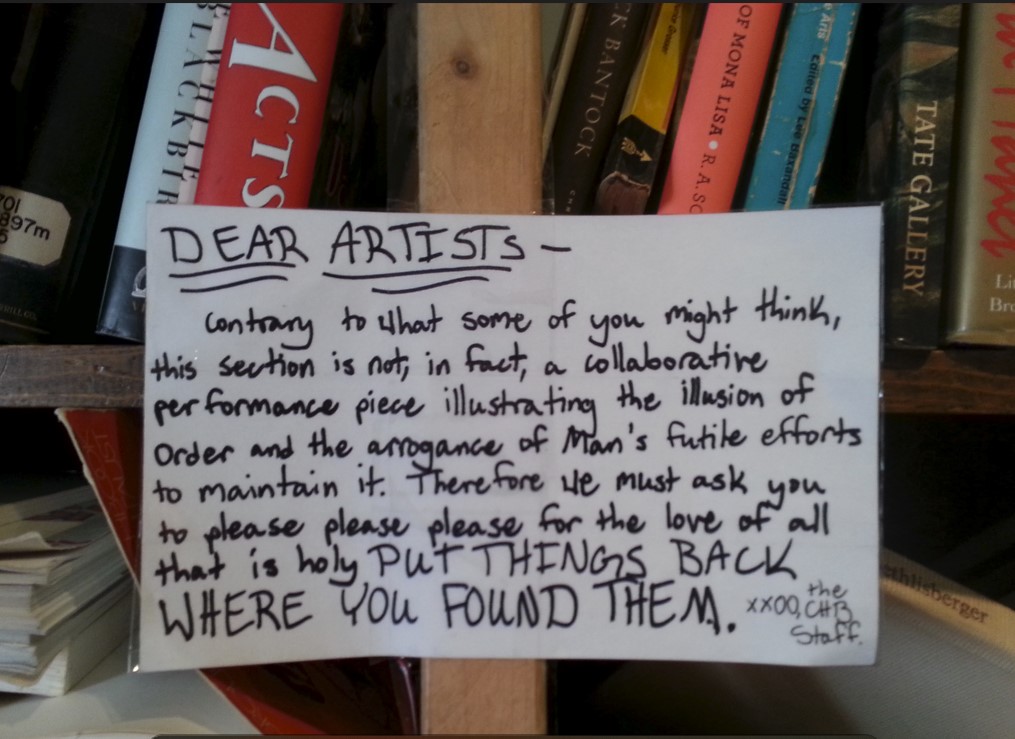 BLACKBIR
ACTS
CK BANTOCK
OF MONA LISA • R. A. SC
Edited by Lee Baxandall
TATE GALLERY
897m
DEAR ARTISTS —
Contrary to what some of you might think,
this section is not, in fact, a collaborative
performance piece illustrating the illusion of
Order and the arrogance of Man's futile efforts
to maintain it. Therefore we must ask you
to please please please for the love of all
that is holy PUT THINGS BACK
WHERE YOU FOUND THEM.
xxOO, the
CHB
Staff.
thlisberger